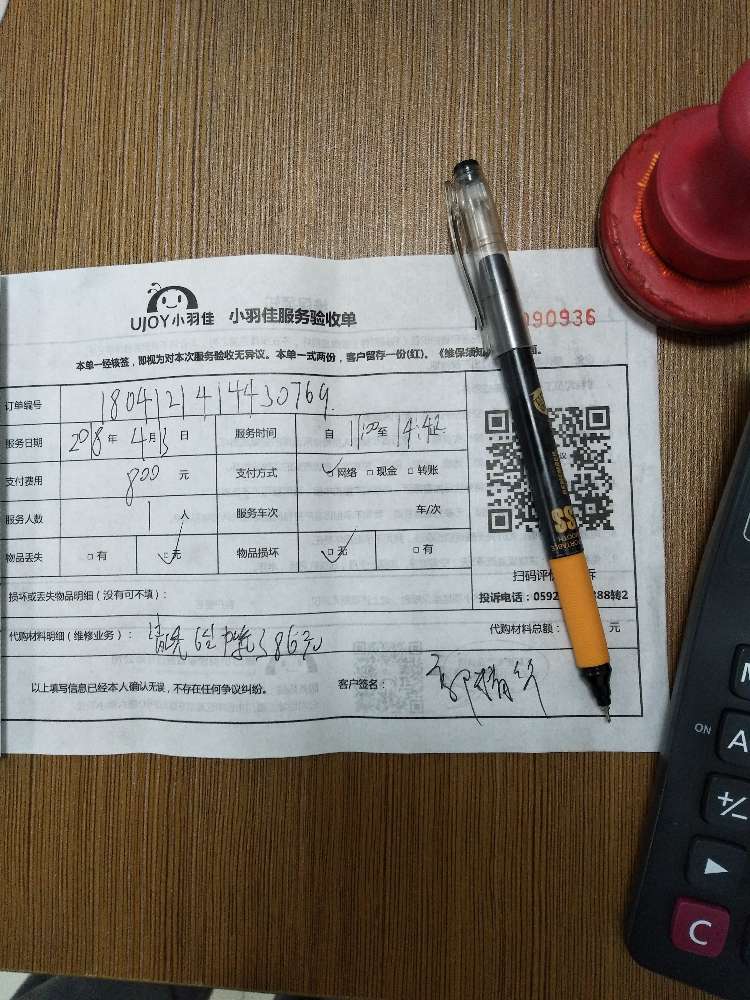 UJOY小羽佳 小羽佳服务验收单
090936
本单一经核签，即视为对本次服务验收无异议。本单一式两份，客户留存一份(红)。《维保须知
订单编号 180412141443076
服务日期 2018年4月13日 服务时间 自 1:00至14:42
支付费用 800元 支付方式 ☑网络 □现金 □转账
服务人数 1人 服务车次 车/次
物品丢失 □有 ☑无 物品损坏 ☑无 □有
扫码评价 诉
损坏或丢失物品明细（没有可不填）：
投诉电话：0592 88转2
代购材料明细（维修业务）： 清洗 386元 代购材料总额： 元
以上填写信息已经本人确认无误，不存在任何争议纠纷。 客户签名：
SS
PORTABLE
SMOOTH
ON
M
A
+/-
▶
C